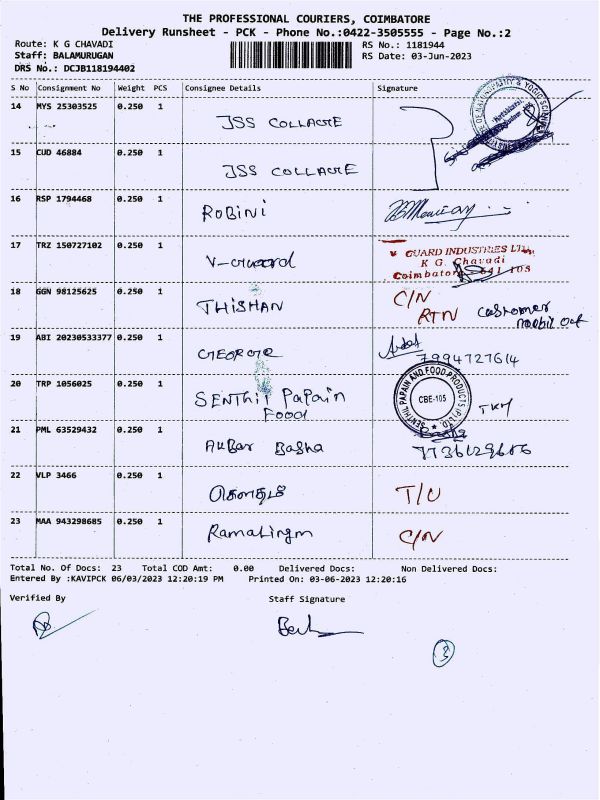 THE PROFESSIONAL COURIERS, COIMBATORE
Delivery Runsheet - PCK - Phone No.:0422-3505555 - Page No.:2
Route: K G CHAVADI
RS No.: 1181944
Staff: BALAMURUGAN
RS Date: 03-Jun-2023
DRS No.: DCJB118194402
S No Consignment No Weight PCS Consignee Details Signature
14 MYS 25303525 0.250 1 JSS COLLAGE
15 CUD 46884 0.250 1 JSS COLLAGE
16 RSP 1794468 0.250 1 ROBINI
17 TRZ 150727102 0.250 1 V-Guard
V GUARD INDUSTRIES LTD.
K G. Chavadi
Coimbatore 641 105
18 GGN 98125625 0.250 1 THISHAN C/N
RTN customer
mobil off
19 ABI 20230533377 0.250 1 GEORGE
7994727614
20 TRP 1056025 0.250 1 SENTHil PaPain
Food
SENTHIL PAPAIN AND FOOD PRODUCTS (P) LTD.
CBE-105
21 PML 63529432 0.250 1 AkBar Basha
22 VLP 3466 0.250 1 கௌதம் T/U
23 MAA 943298685 0.250 1 Ramalingm C/N
Total No. Of Docs: 23 Total COD Amt: 0.00 Delivered Docs: Non Delivered Docs:
Entered By :KAVIPCK 06/03/2023 12:20:19 PM Printed On: 03-06-2023 12:20:16
Verified By Staff Signature
3